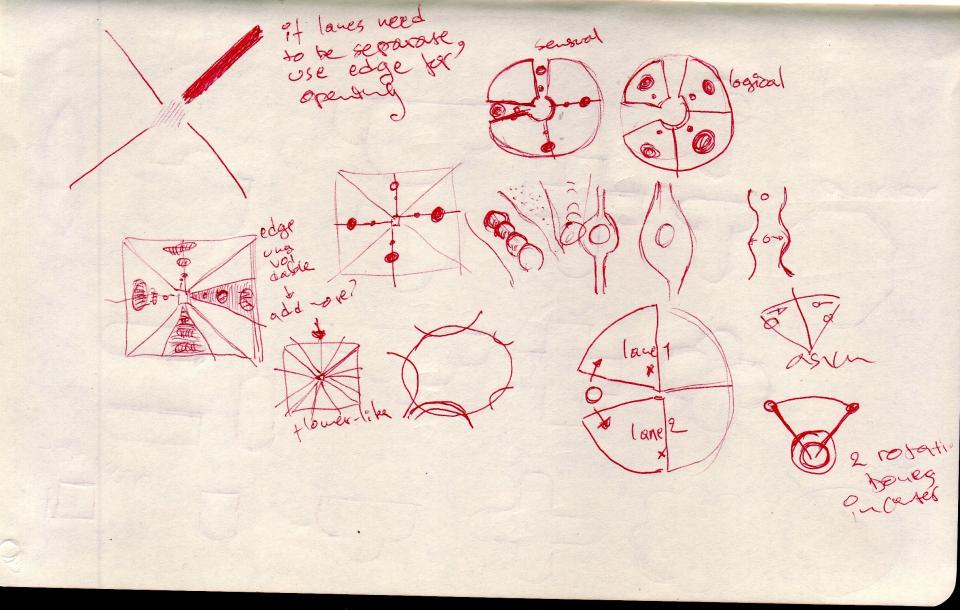 if lanes need
to be separate,
use edge for
opening
sensual
logical
edge
una
voi
dable
↓
add more?
flower-like
lane 1
x
lane 2
x
asym
2 rotati
bones
in center